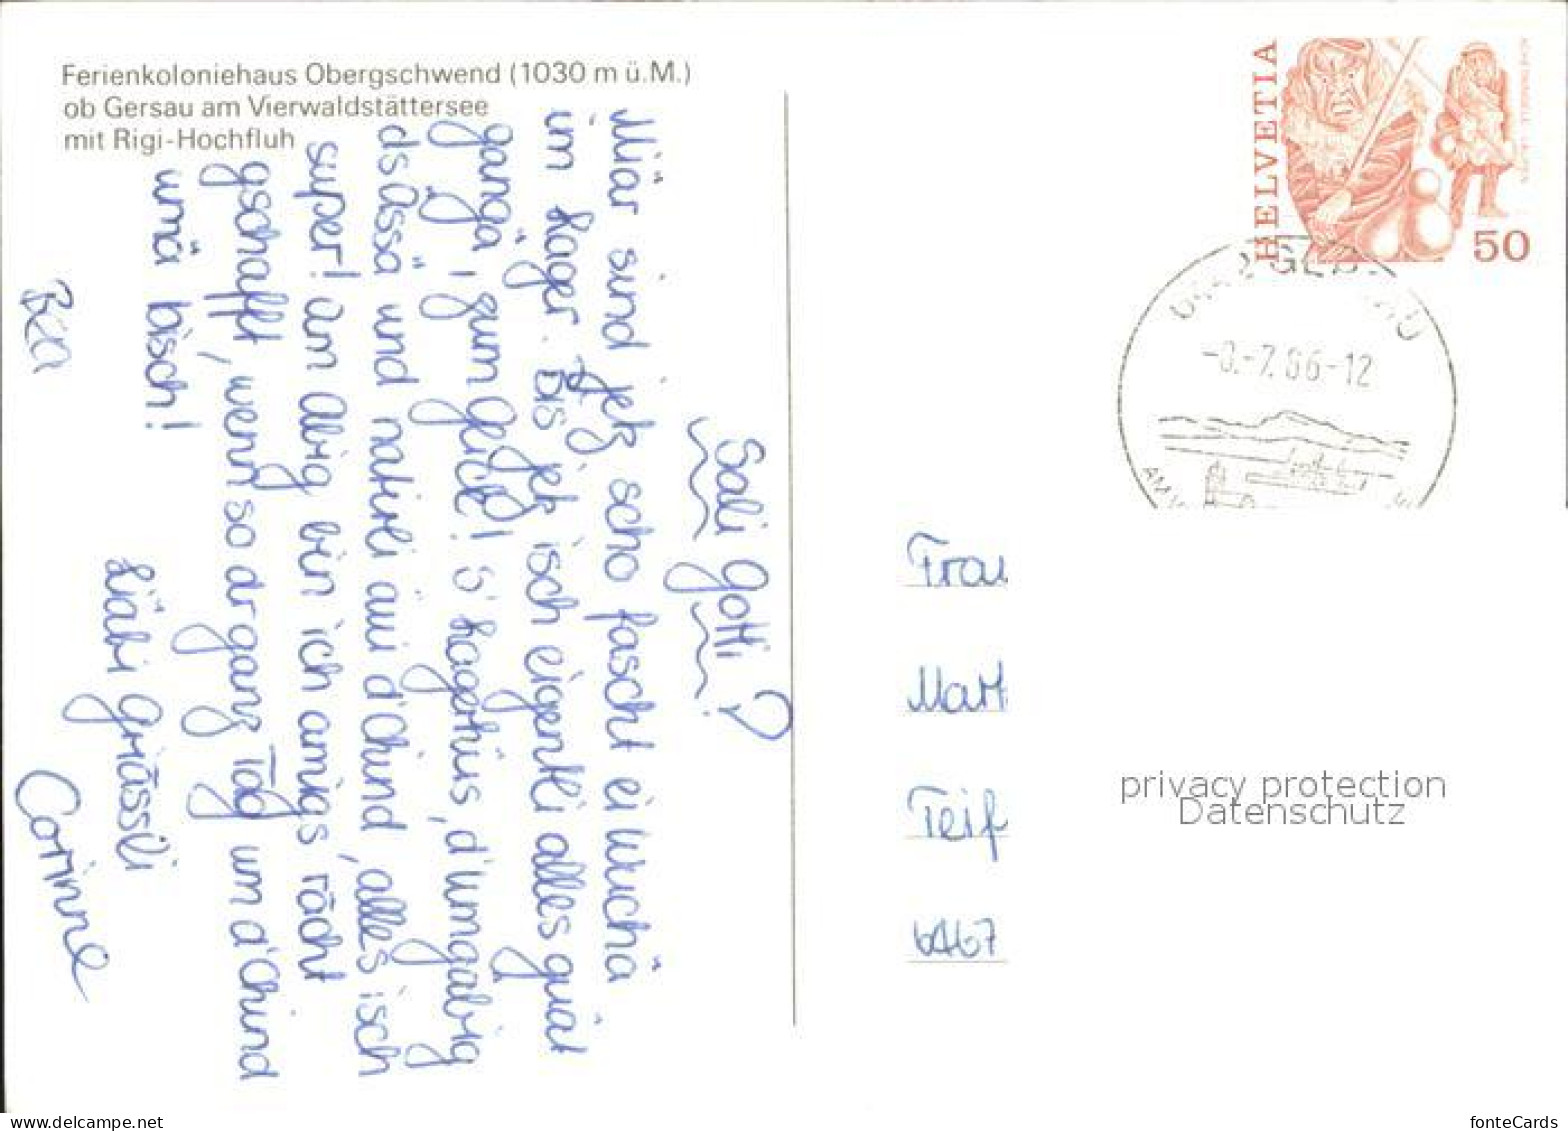 Ferienkoloniehaus Obergschwend (1030 m ü.M.)
ob Gersau am Vierwaldstättersee
mit Rigi-Hochfluh
Sali Gotti
Miär sind jetz scho fascht ei Wuchä
im Lager. Bis jetz isch eigentli alles guät
gangä, zum Glück! S' Lagerhus, d'Umgäbig
dsÄssä und natürli äui d'Chind, alles isch
super! Am Abig bin ich amigs rächt
gschafft, wenn so dr ganz Tag um d'Chind
umä bisch!
Liäbi Griässli
Bea
Corinne
HELVETIA
50
6467
privacy protection
Datenschutz
www.delcampe.net
fonteCards